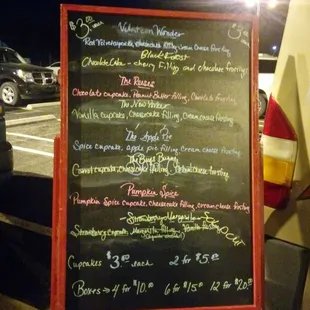 $3.00 Valentine's Wonder $3.00
Red Velvet cupcake, cheesecake filling, cream cheese frosting
Black Forest
Chocolate Cake - cherry filling and chocolate frosting
The Reeses
Chocolate cupcake, Peanut Butter filling, Chocolate frosting
The New Yorker
Vanilla cupcake, cheesecake filling, cream cheese frosting
The Apple Pie
Spice cupcake, apple pie filling, cream cheese frosting
The Bugs Bunny
Carrot cupcake, cheesecake filling, cream cheese frosting
Pumpkin Spice
Pumpkin Spice cupcake, cheesecake filling, cream cheese frosting
Strawberry Margarita
Strawberry cupcake, Margarita filling, Vanilla frosting
OUT
Cupcakes $3.00 each 2 for $5.00
Boxes → 4 for $10.00 6 for $15.00 12 for $20.00